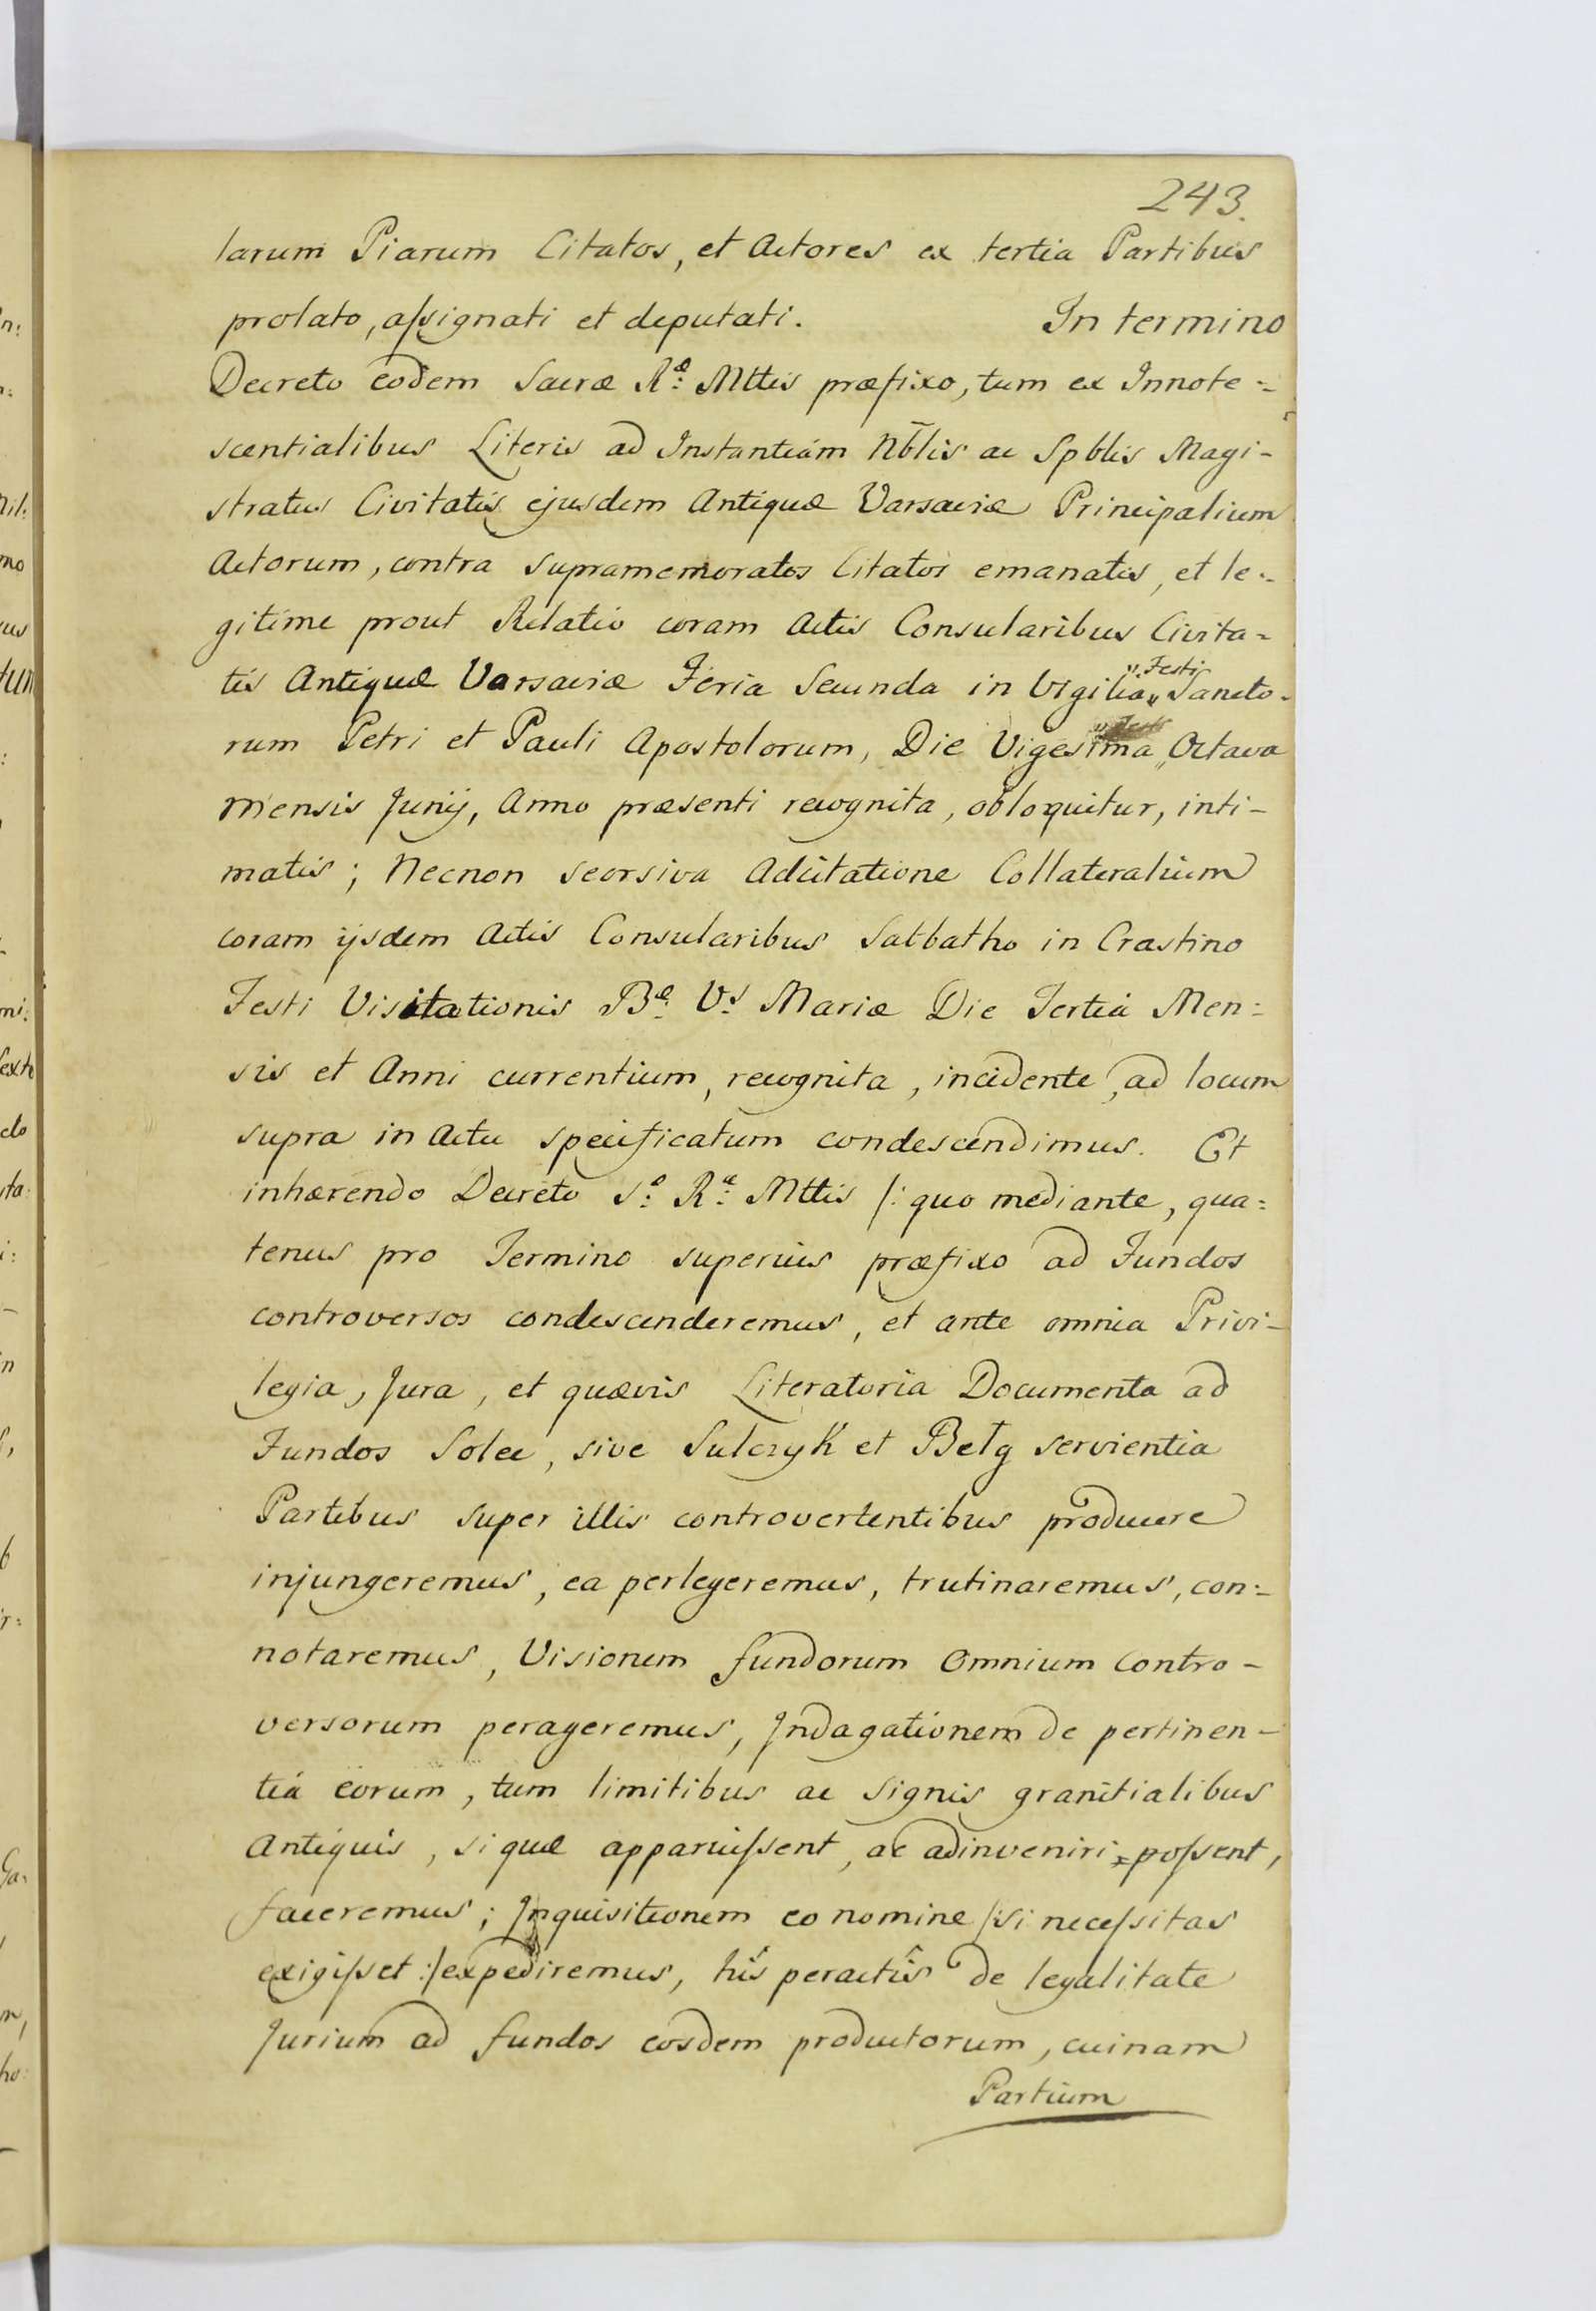 243.
larum Piarum Citatos, et Actores ex tertia Partibus
prolato, assignati et deputati. In termino
Decreto eodem Sacræ Rᵉ: Mttis præfixo, tum ex Innote=
scentialibus Literis ad Instantiam Nb̄lis ac Spblis Magi-
stratus Civitatis ejusdem Antiquæ Varsaviæ Principalium
Actorum, contra supramemoratos Citatos emanatis, et le=
gitime prout Relatio coram Actis Consularibus Civita=
tis Antiquæ Varsaviæ Feria Secunda in Vigilia „Festi„ Sancto-
rum Petri et Pauli Apostolorum, Die Vigesima Octava
Mensis Junij, Anno præsenti recognita, obloquitur, inti-
matis; Necnon seorsiva Adcitatione Collateralium
coram ijsdem Actis Consularibus Sabbatho in Crastino
Festi Visitationis Bᵉ: Vˢ: Mariæ Die Tertia Men=
sis et Anni currentium, recognita, incidente, ad locum
supra in Actu specificatum condescendimus. Et
inhærendo Decreto Sᵉ: Rᵉ: Mttis /: quo mediante, qua=
tenus pro Termino superius præfixo ad Fundos
controversos condescenderemus, et ante omnia Privi-
legia, Jura, et quævis Literatoria Documenta ad
Fundos Solec, sive Sulczyk et Bełg servientia
Partibus super illis controvertentibus producere
injungeremus, ea perlegeremus, trutinaremus, con=
notaremus, Visionem fundorum Omnium Contro-
versorum perageremus, Indagationem de pertinen-
tia eorum, tum limitibus ac signis granitialibus
Antiquis, si quæ apparuissent, ac adinveniri possent,
faceremus; Inquisitionem eo nomine /:si necessitas
exigisset:/ expediremus, his peractis de legalitate
Jurium ad fundos eosdem productorum, cuinam
Partium